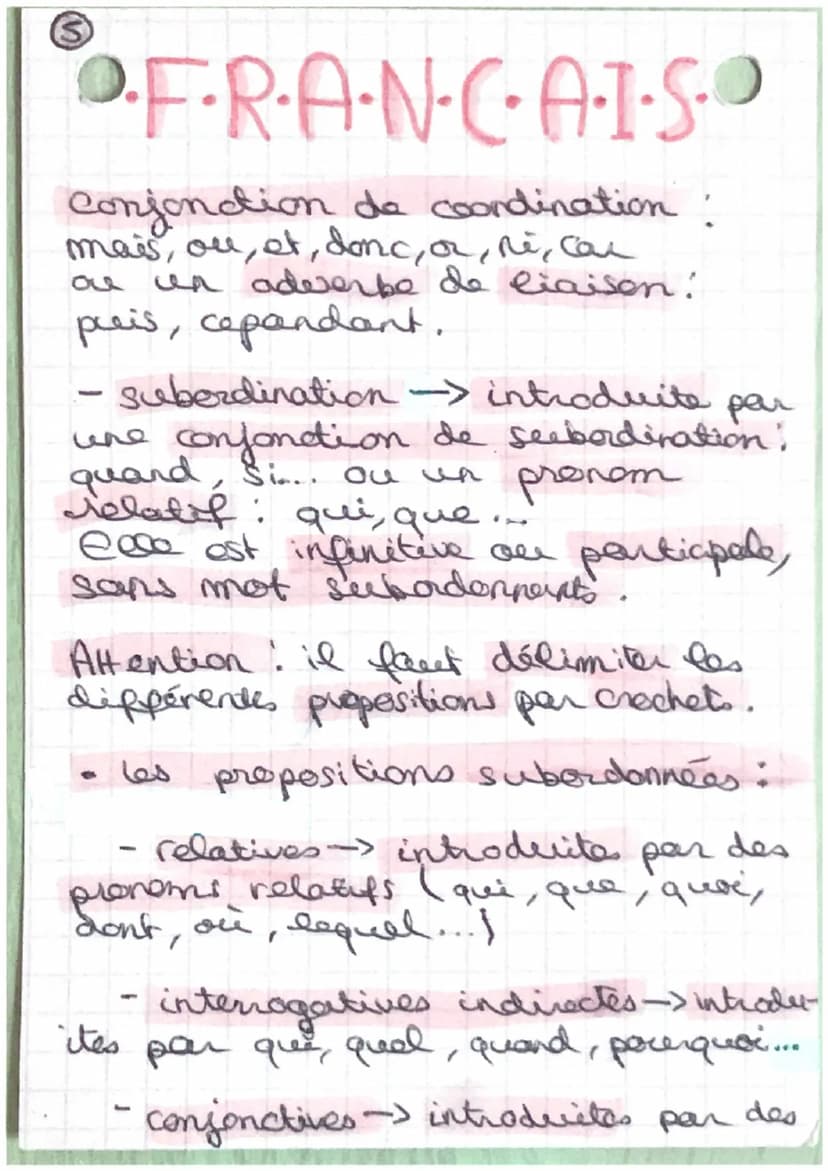 5
F.R.A.N.C.A.I.S.
conjonction de coordination :
mais, ou, et, donc, or, ni, car
ou un adverbe de liaison :
puis, cependant.
- subordination -> introduite par
une conjonction de subordination :
quand, si... ou un pronom
relatif : qui, que...
Elle est infinitive ou participale,
sans mot subordonnants.
Attention : il faut délimiter les
différentes propositions par crochets.
• les propositions subordonnées :
- relatives -> introduites par des
pronoms relatifs (qui, que, quoi,
dont, où, lequel...)
- interrogatives indirectes -> introdu-
ites par qui, quel, quand, pourquoi...
- conjonctives -> introduites par des